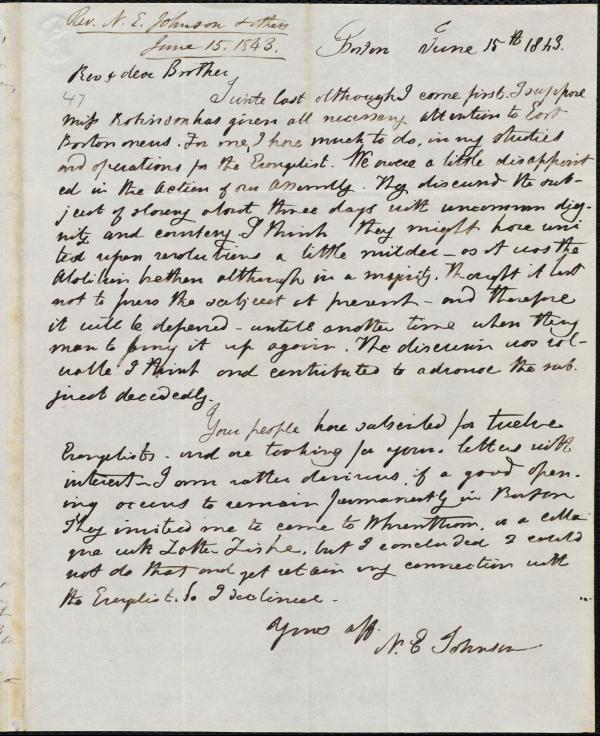 Rev. N. E. Johnson & others
June 15. 1843.
Boston June 15th 1843.
Rev & dear Brother
47
I write last although I come first. I suppose
Miss Robinson has given all necessary attention to East
Boston news. For me, I have much to do, in my studies
and operations for the Evangelist. We were a little disappoint
ed in the action of our Assembly. They discussed the sub-
ject of slavery about three days with uncommon dig-
nity and courtesy I think they might have uni
ted upon resolutions a little milder - as it was the
Abolition brethren although in a majority, thought it best
not to press the subject at present - and therefore
it will be deferred - untill another time when they
mean to bring it up again. The discussion was val-
uable I think and contributed to advance the sub-
ject decidedly.
Your people have subscribed for twelve
Evangelists - and are looking for your letters with
interest - I am rather desirous, if a good open-
ing occurs to remain permanently in Boston
They invited me to come to Wrentham, as a collea
gue with Father Fiske, but I concluded I could
not do that and yet retain my connection with
the Evangelist. So I declined -
Yours aff.
N. E Johnson